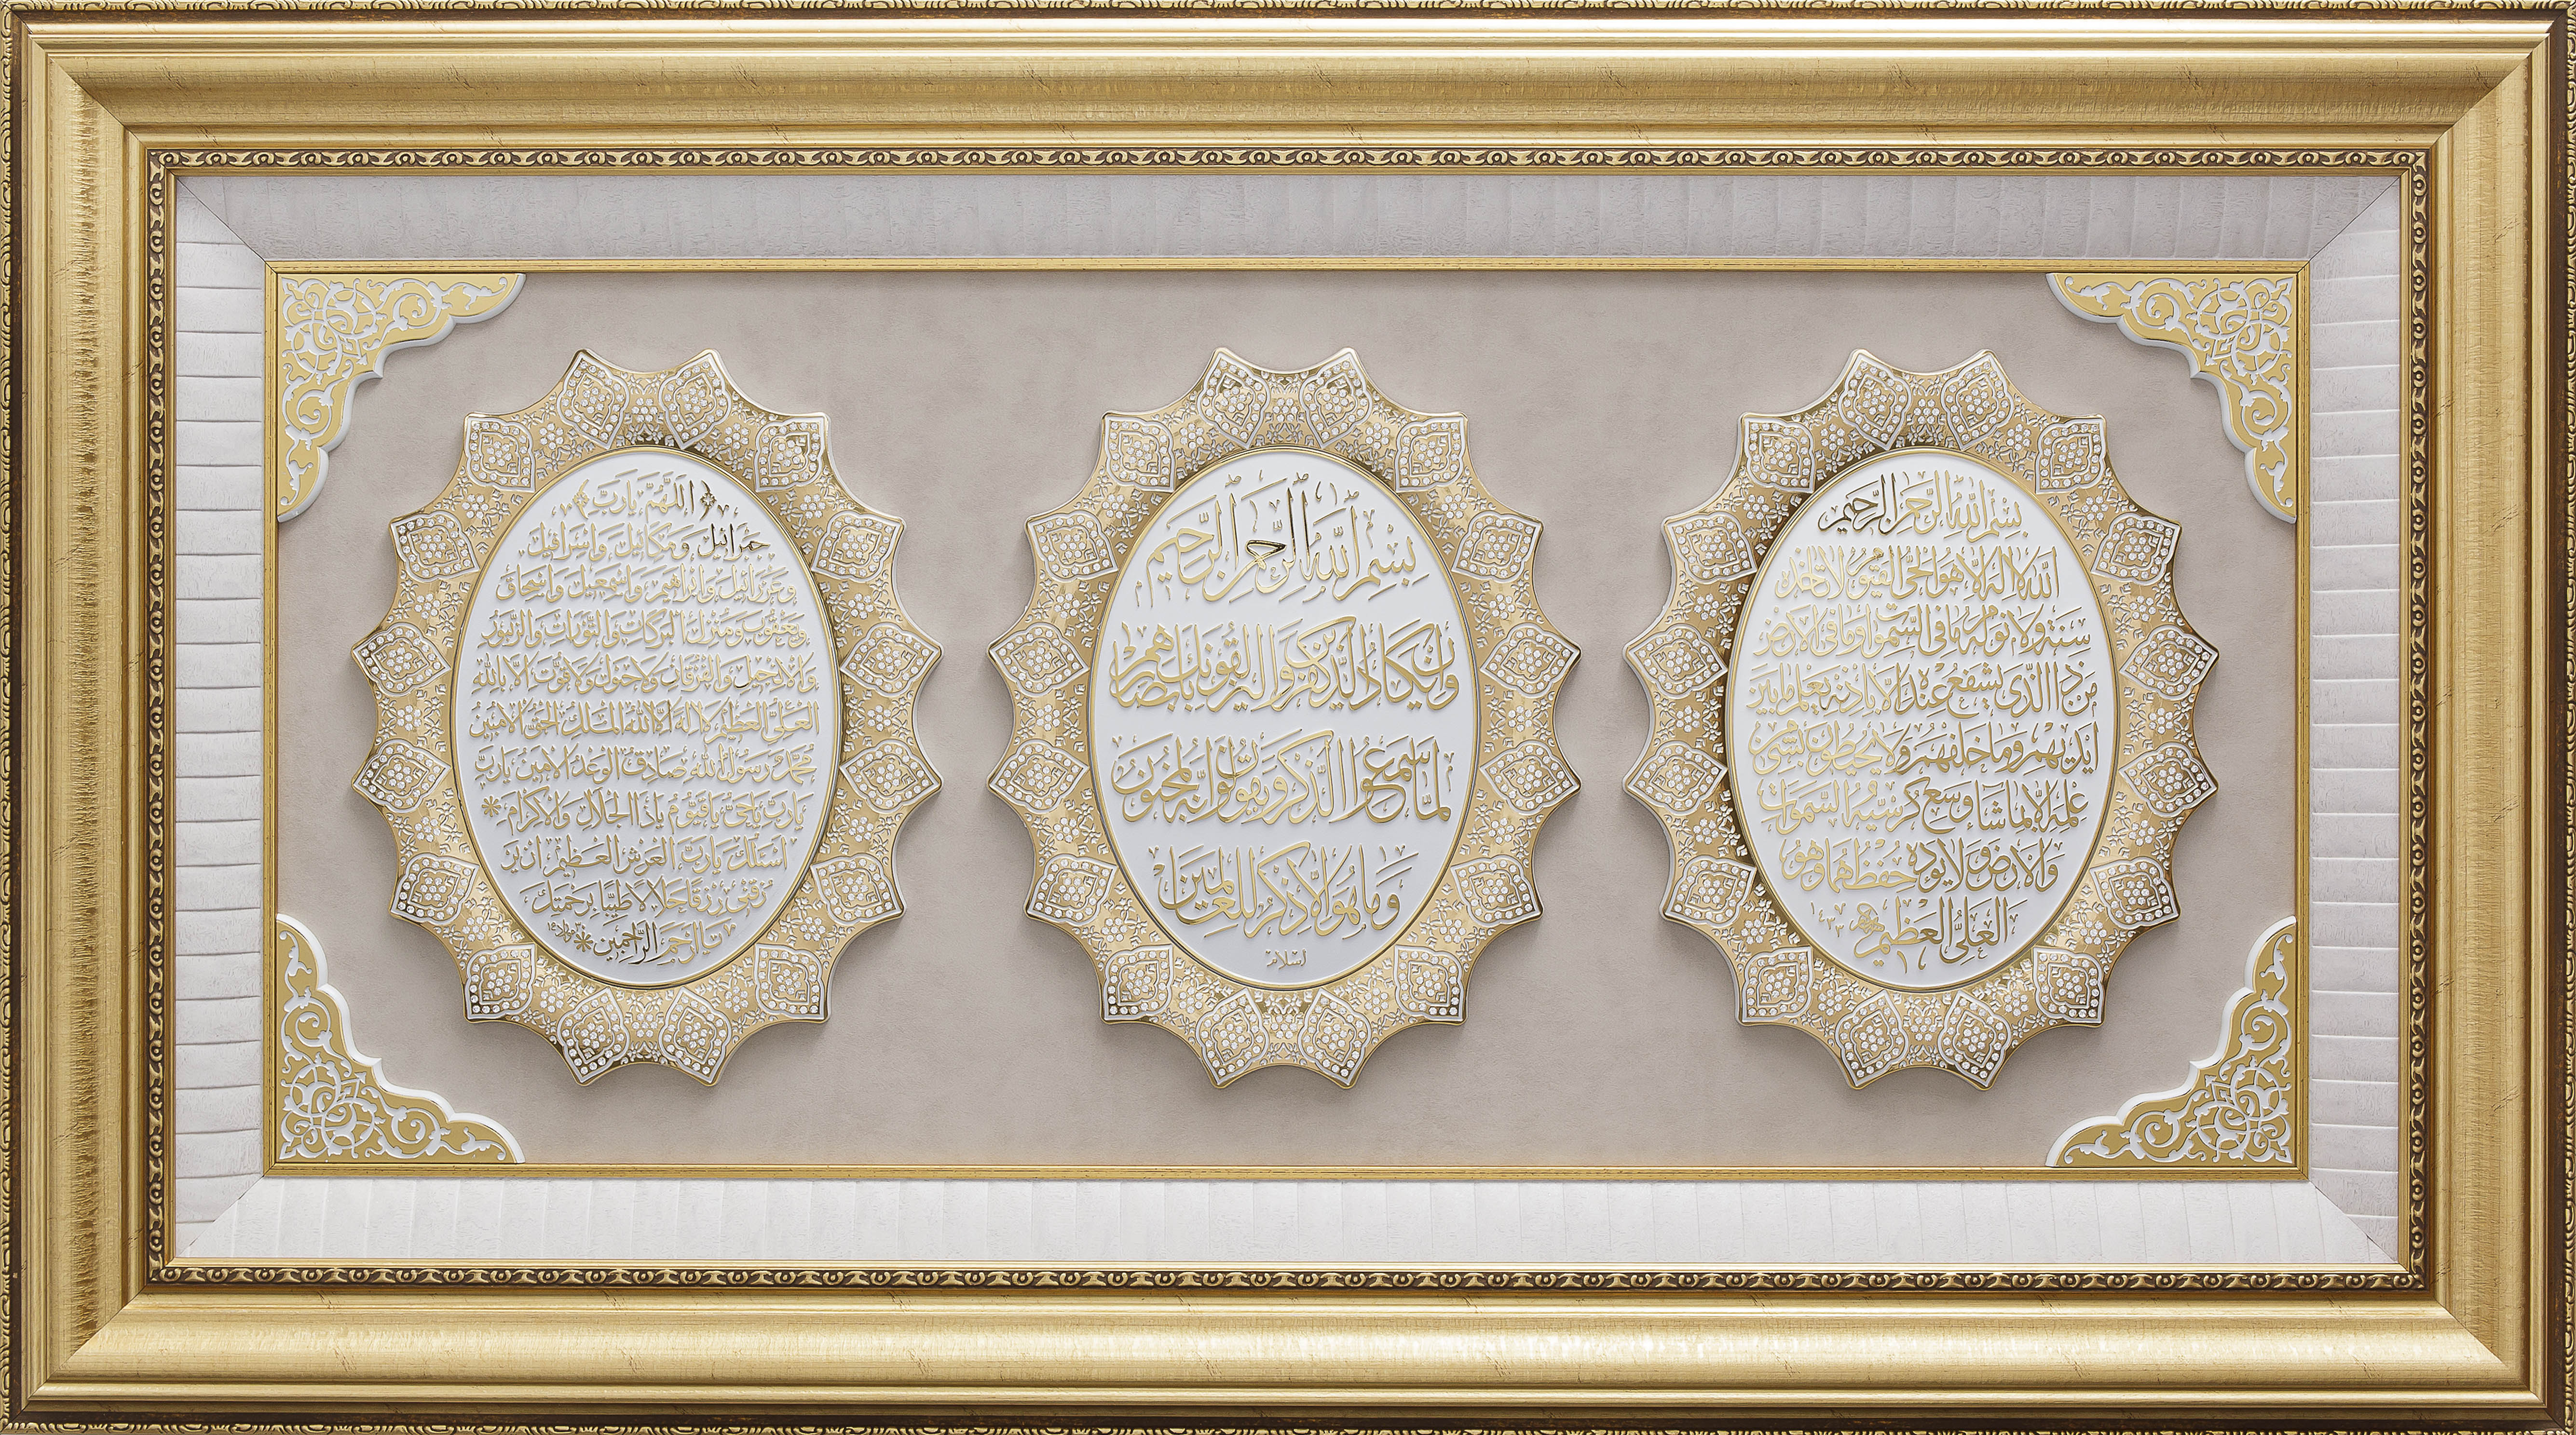 بسم الله الرحمن الرحيم
الله لا اله الا هو الحى القيوم لا تاخذه
سنة ولا نوم له ما فى السموات وما فى الارض
من ذا الذى يشفع عنده الا باذنه يعلم ما بين
ايديهم وما خلفهم ولا يحيطون بشئ من
علمه الا بما شاء وسع كرسيه السموات
والارض ولا يوده حفظهما وهو
العلى العظيم ١٤٣٣
بسم الله الرحمن الرحيم
وان يكاد الذين كفروا ليزلقونك بابصارهم
لما سمعوا الذكر ويقولون انه لمجنون
وما هو الا ذكر للعالمين
اسلام
﴿ اللهم يارب ﴾
جبرائيل وميكائيل واسرافيل
وعزرائيل وابراهيم واسمعيل واسحاق
ويعقوب ومنزل البركات والتورات والزبور
والانجيل والفرقان ولا حول ولا قوت الا بالله
العلى العظيم لا اله الا الله الملك الحق الامين
محمد رسول الله صادق الوعد الامين يارب
يارب ياحى ياقيوم ياذا الجلال والاكرام *
اسئلك يارب العرش العظيم ان ير
زقنى رزقا حلالا طيبا برحمتك
يا ارحم الراحمين *